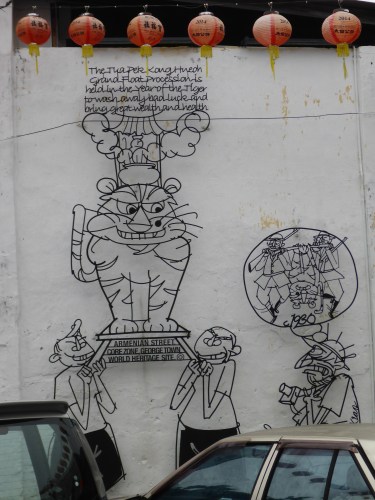 2014
2014
The Tua Pek Kong Hneoh
Grand Float Procession is
held in the Year of the Tiger
to wash away bad luck and
bring great wealth and health
c.1980
ARMENIAN STREET
CORE ZONE GEORGE TOWN
WORLD HERITAGE SITE